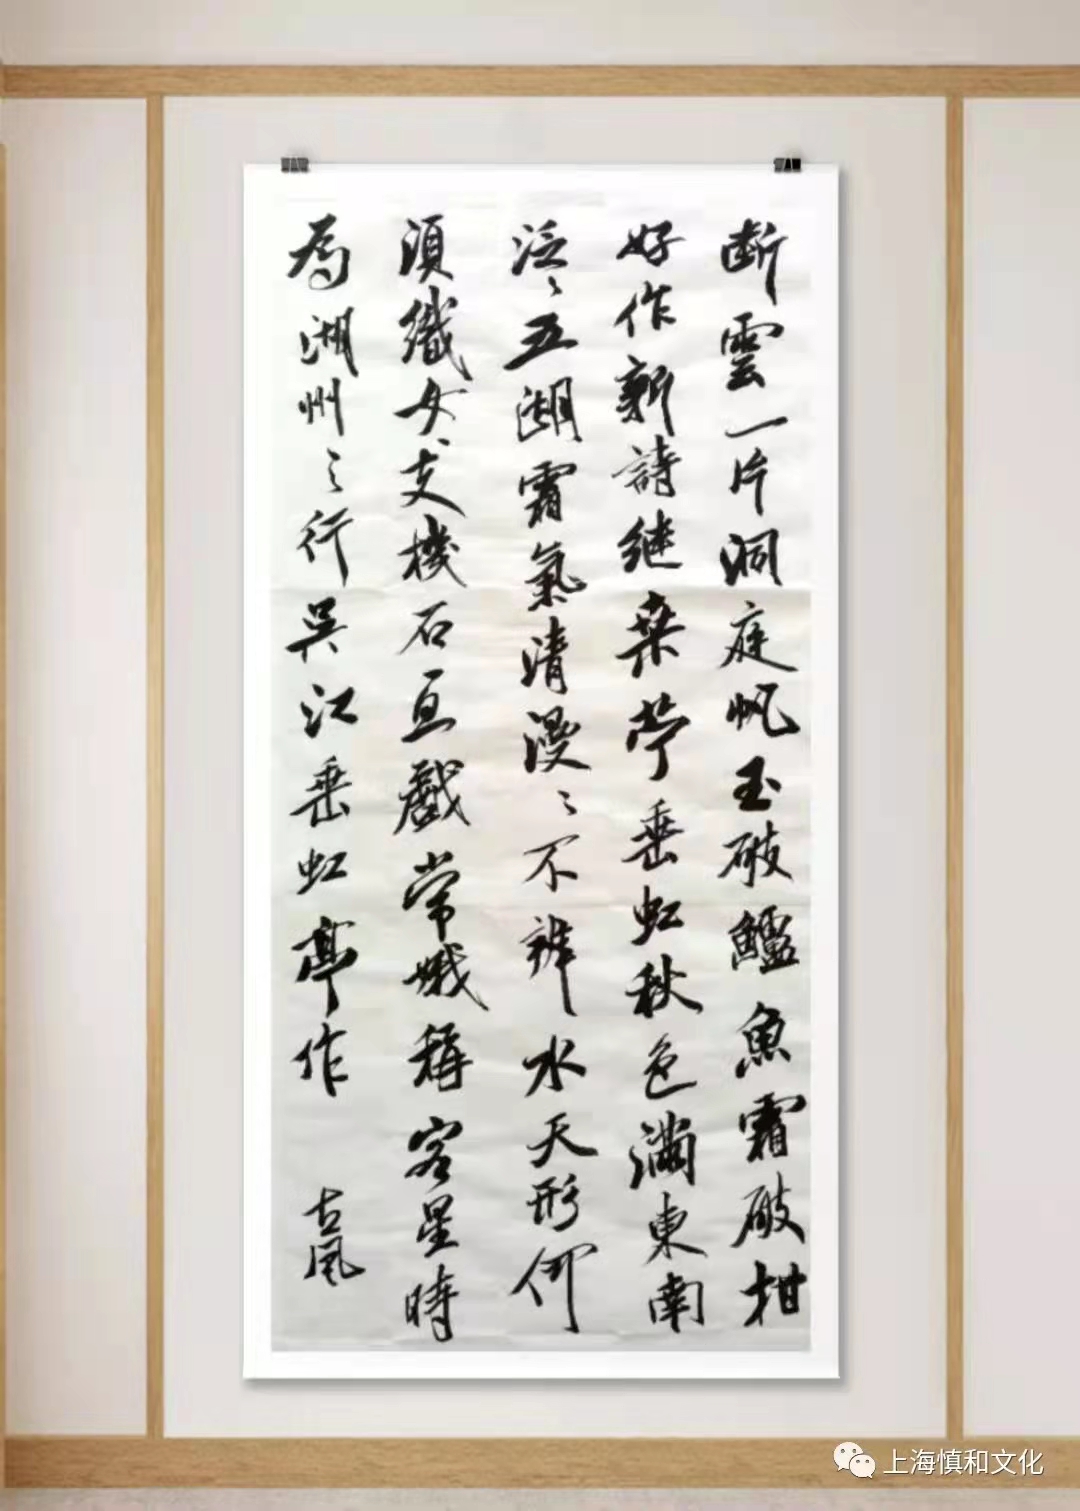 斷雲一片洞庭帆玉破鱸魚霜破柑
好作新詩继桑苧垂虹秋色滿東南
泛〻五湖霜氣清漫〻不辨水天形何
須織女支機石且戲常娥稱客星時
為湖州之行吳江垂虹亭作
古風
上海慎和文化